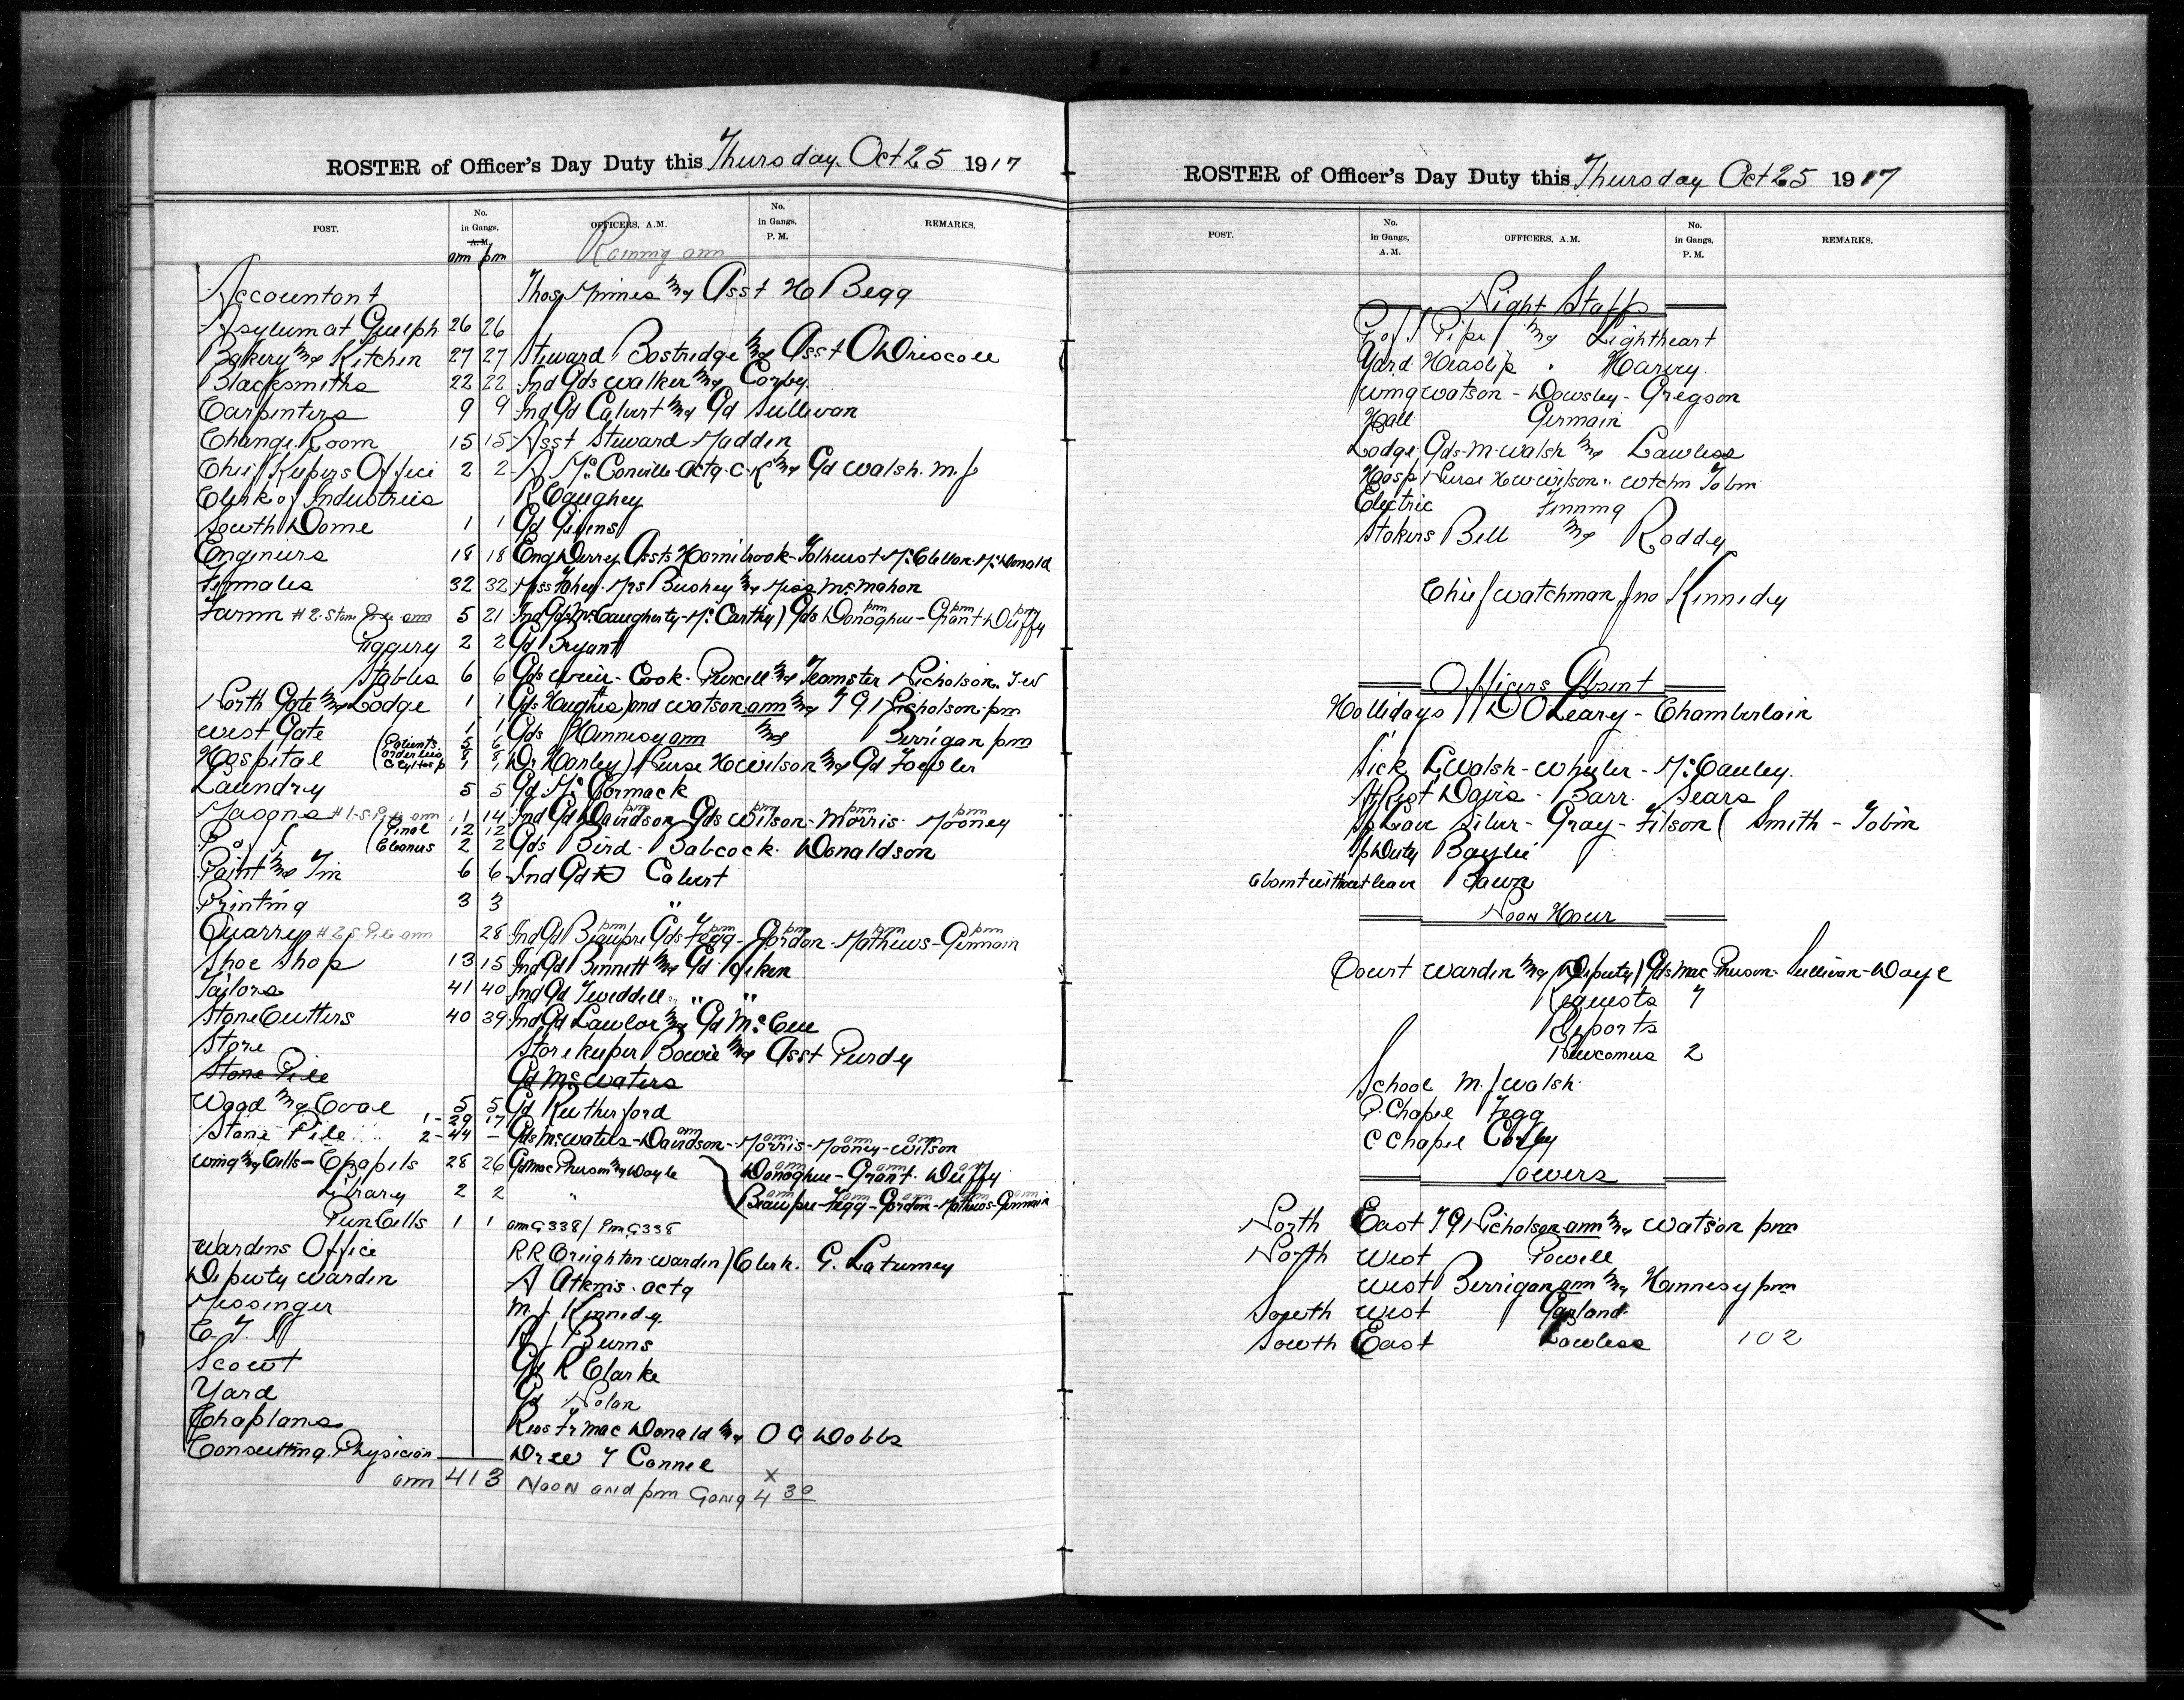 ROSTER of Officer's Day Duty this Thursday. Oct 25 1917
POST. No. in Gangs, A.M. OFFICERS, A.M. No. in Gangs, P.M. REMARKS.
am pm Raining am
Accountant Thos Minnes & Asst H Begg
Asylum at Guelph 26 26
Bakery & Kitchen 27 27 Steward Bostridge & Asst O Driscoll
Blacksmiths 22 22 Ind Gds Walker & Corby
Carpenters 9 9 Ind Gd Calvert & Gd Sullivan
Change Room 15 15 Asst Steward Madden
Chief Keepers Office 2 2 A McConville actg. C.K & Gd Walsh. M. J
Clerk of Industries R Caughey
South Dome 1 1 Gd Givens
Engineers 18 18 Eng Derry Assts Hornibrook - Tolhurst - McClellan. McDonald
Females 32 32 Miss Fahey. Mrs Bushey & Miss McMahon
Farm #2. Stone Pile am 5 21 Ind Gds McCaugherty - McCarthy) Gds Donoghue pm - Grant pm - Duffy pm
Piggery 2 2 Gd Bryant
Stables 6 6 Gds Weir - Cook. Purcell & Teamster Nicholson. T-W
North Gate & Lodge 1 1 Gds Hughes) and Watson am & T G Nicholson. pm
West Gate 1 1 Gds Hennesy am & Berrigan pm
Hospital (Patients 5 6 orderlies 8 8 1 1 Dr Hanley) Nurse H Wilson & Gd Fowler
Laundry 5 5 Gd McCormack
Masons #1-S. Pile am 1 14 Ind Gd Davidson pm Gds Wilson pm - Morris pm. Mooney pm
P of I (Penal 12 12 Cleaners 2 2 Gds Bird - Babcock. Donaldson
Paint & Tin 6 6 Ind Gd Calvert
Printing 3 3 "
Quarry #2 S. Pile am 28 Ind Gd Beaupre pm Gds Fegg pm - Gordon pm - Mathews pm - Germain pm
Shoe Shop 13 15 Ind Gd Bennett & Gd Aiken
Taylors 41 40 Ind Gd Tweddell " "
Stone Cutters 40 39 Ind Gd Lawlor & Gd McCue
Store Storekeeper Bowie & Asst Purdy
Stone Pile Gd McWaters
Wood & Coal 5 5 Gd Rutherford
Stone Pile 1- 29 17 2- 44 - Gds McWaters - Davidson am - Morris am - Mooney am - Wilson am
Wing & Cells - Chapels 28 26 Gds MacPherson & Doyle Donoghue am - Grant am. Duffy am
Library 2 2 " Beaupre am - Fegg am - Gordon am - Mathews am - Germain am
Pun Cells 1 1 am G338 / Pm G338
Wardens Office R R Creighton Warden) Clerk. G. Laturney
Deputy Warden A Atkins. actg
Messenger M. J Kennedy.
C. T. I R J Burns
Scout Gd R Clarke
Yard Gd Nolan
Chaplans Revs Fr MacDonald & O G Dobbs
Consulting. Physician Dr W T Connel
am 413 Noon and pm Gang X 4 30
ROSTER of Officer's Day Duty this Thursday Oct 25 1917
POST. No. in Gangs, A.M. OFFICERS, A.M. No. in Gangs, P.M. REMARKS.
Night Staff
P of I Pipe & Lightheart
Yard Heaslip " Harvey.
Wing Watson - Dowsley - Gregson
Hall Germain
Lodge Gds - M. Walsh & Lawless
Hosp Nurse H W Wilson. Wtchn Tobin
Electric Finning
Stokers Bell & Roddy
Chief Watchman Jno Kennedy
Officers Absent
Hollidays D O'Leary - Chamberlain
Sick L Walsh - Wheeler - McCauley.
St Rest Davis - Barr. Sears
Sp Leave Silver - Gray - Filson ( Smith - Tobin
Sp Duty Baylie
absent without leave Bawn
Noon Hour
Court Warden & Deputy) Gds MacPherson. Sullivan - Doyle
Requests 7
Reports
Newcomers 2
School M. J Walsh.
P. Chapel Fegg
C Chapel Corby
Towers
North East T G Nicholson am & Watson pm
North West Powell
West Berrigan am & Hennesy pm
South West Garland
South East Lawless 102